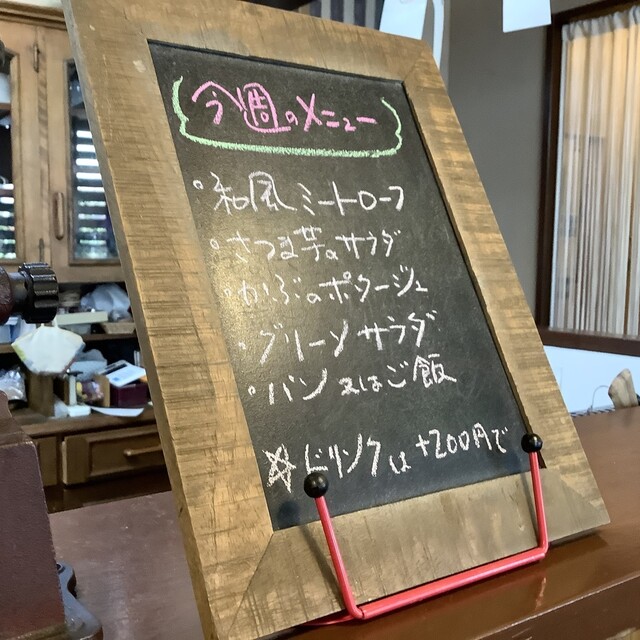 今週のメニュー
・和風ミートローフ
・さつま芋のサラダ
・かぶのポタージュ
・グリーンサラダ
・パン又はご飯
☆ドリンクは+200円で